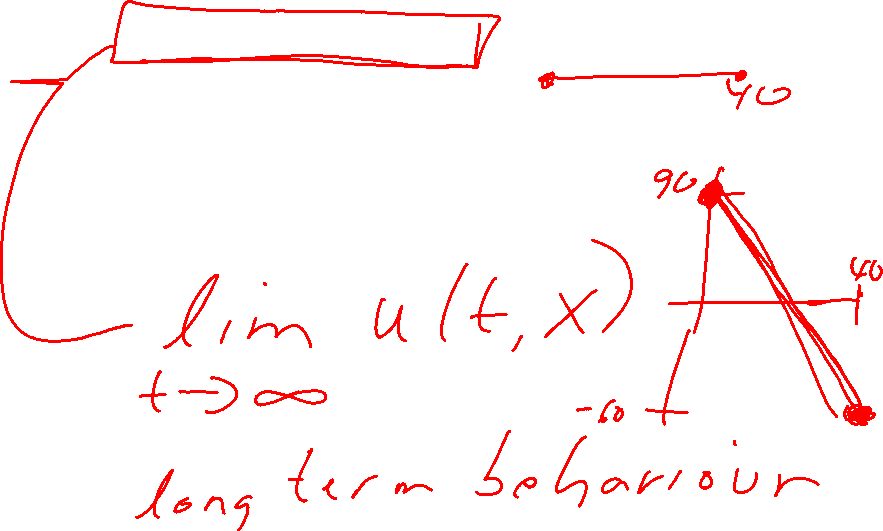 40
90
40
lim u(t, x)
t→∞
-60
long term behaviour